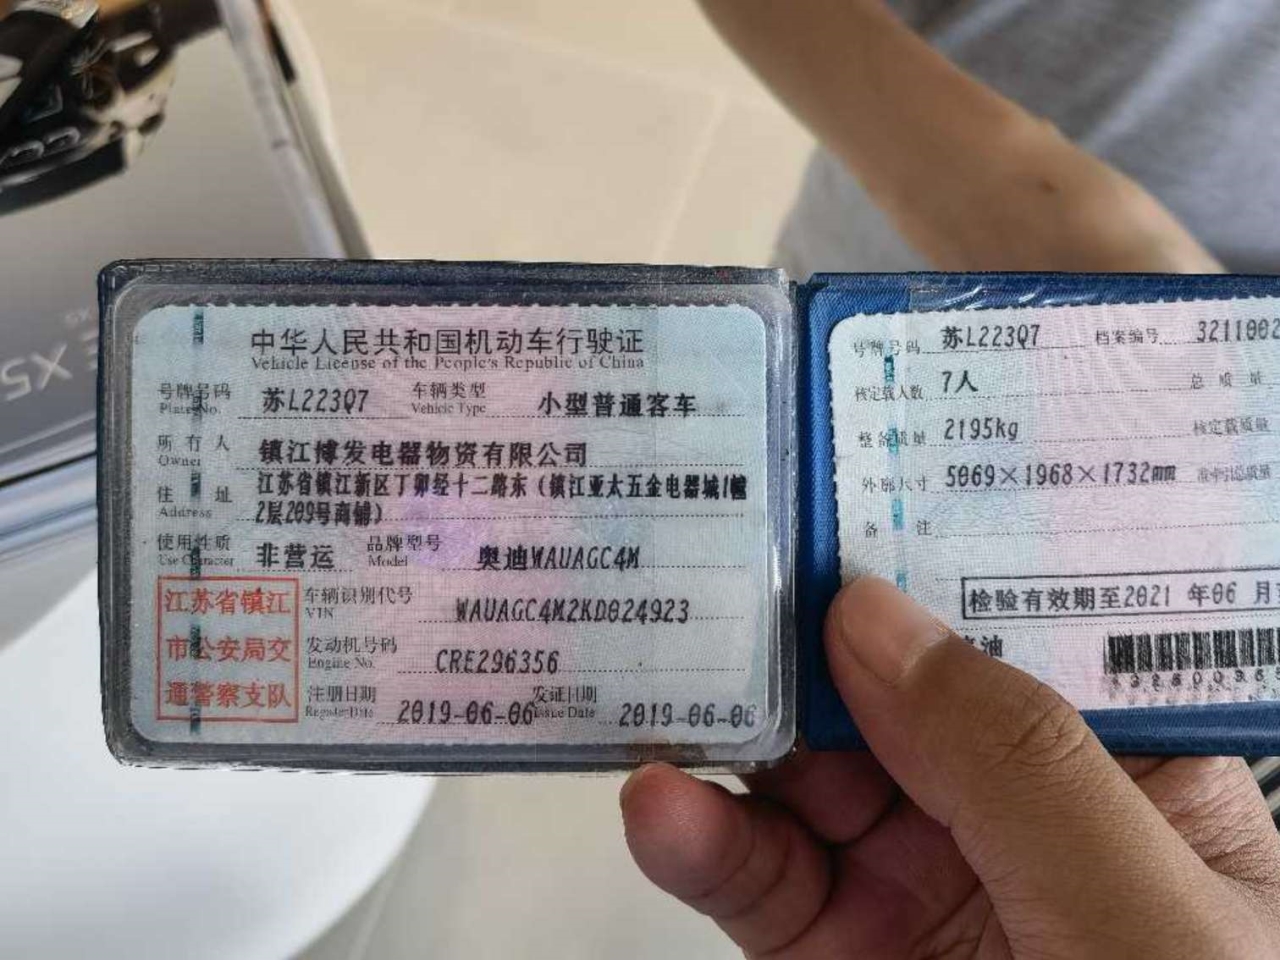 中华人民共和国机动车行驶证
Vehicle License of the People's Republic of China
号牌号码 苏L223Q7 车辆类型 小型普通客车
Plate No. Vehicle Type
所有人 镇江博发电器物资有限公司
Owner
住址 江苏省镇江新区丁卯经十二路东（镇江亚太五金电器城1幢
Address 2层209号商铺）
使用性质 非营运 品牌型号 奥迪WAUAGC4M
Use Character Model
江苏省镇江
市公安局交
通警察支队
车辆识别代号 WAUAGC4M2KD024923
VIN
发动机号码 CRE296356
Engine No.
注册日期 2019-06-06 发证日期 2019-06-06
Register Date Issue Date
号牌号码 苏L223Q7 档案编号 3211002
核定载人数 7人 总质量
整备质量 2195kg 核定载质量
外廓尺寸 5069×1968×1732mm 准牵引总质量
备注
检验有效期至2021 年06 月
油
X5